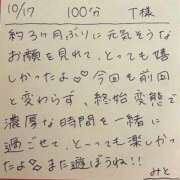 10/17 100分 T様
約3ヶ月ぶりに元気そうな
お顔を見れて、とっても嬉
しかったよ♡今回も前回
と変わらず、終始変態で
濃厚な時間を一緒に
過ごせて、とーっても楽しか
ったよ♡また遊ぼうね!!
みと